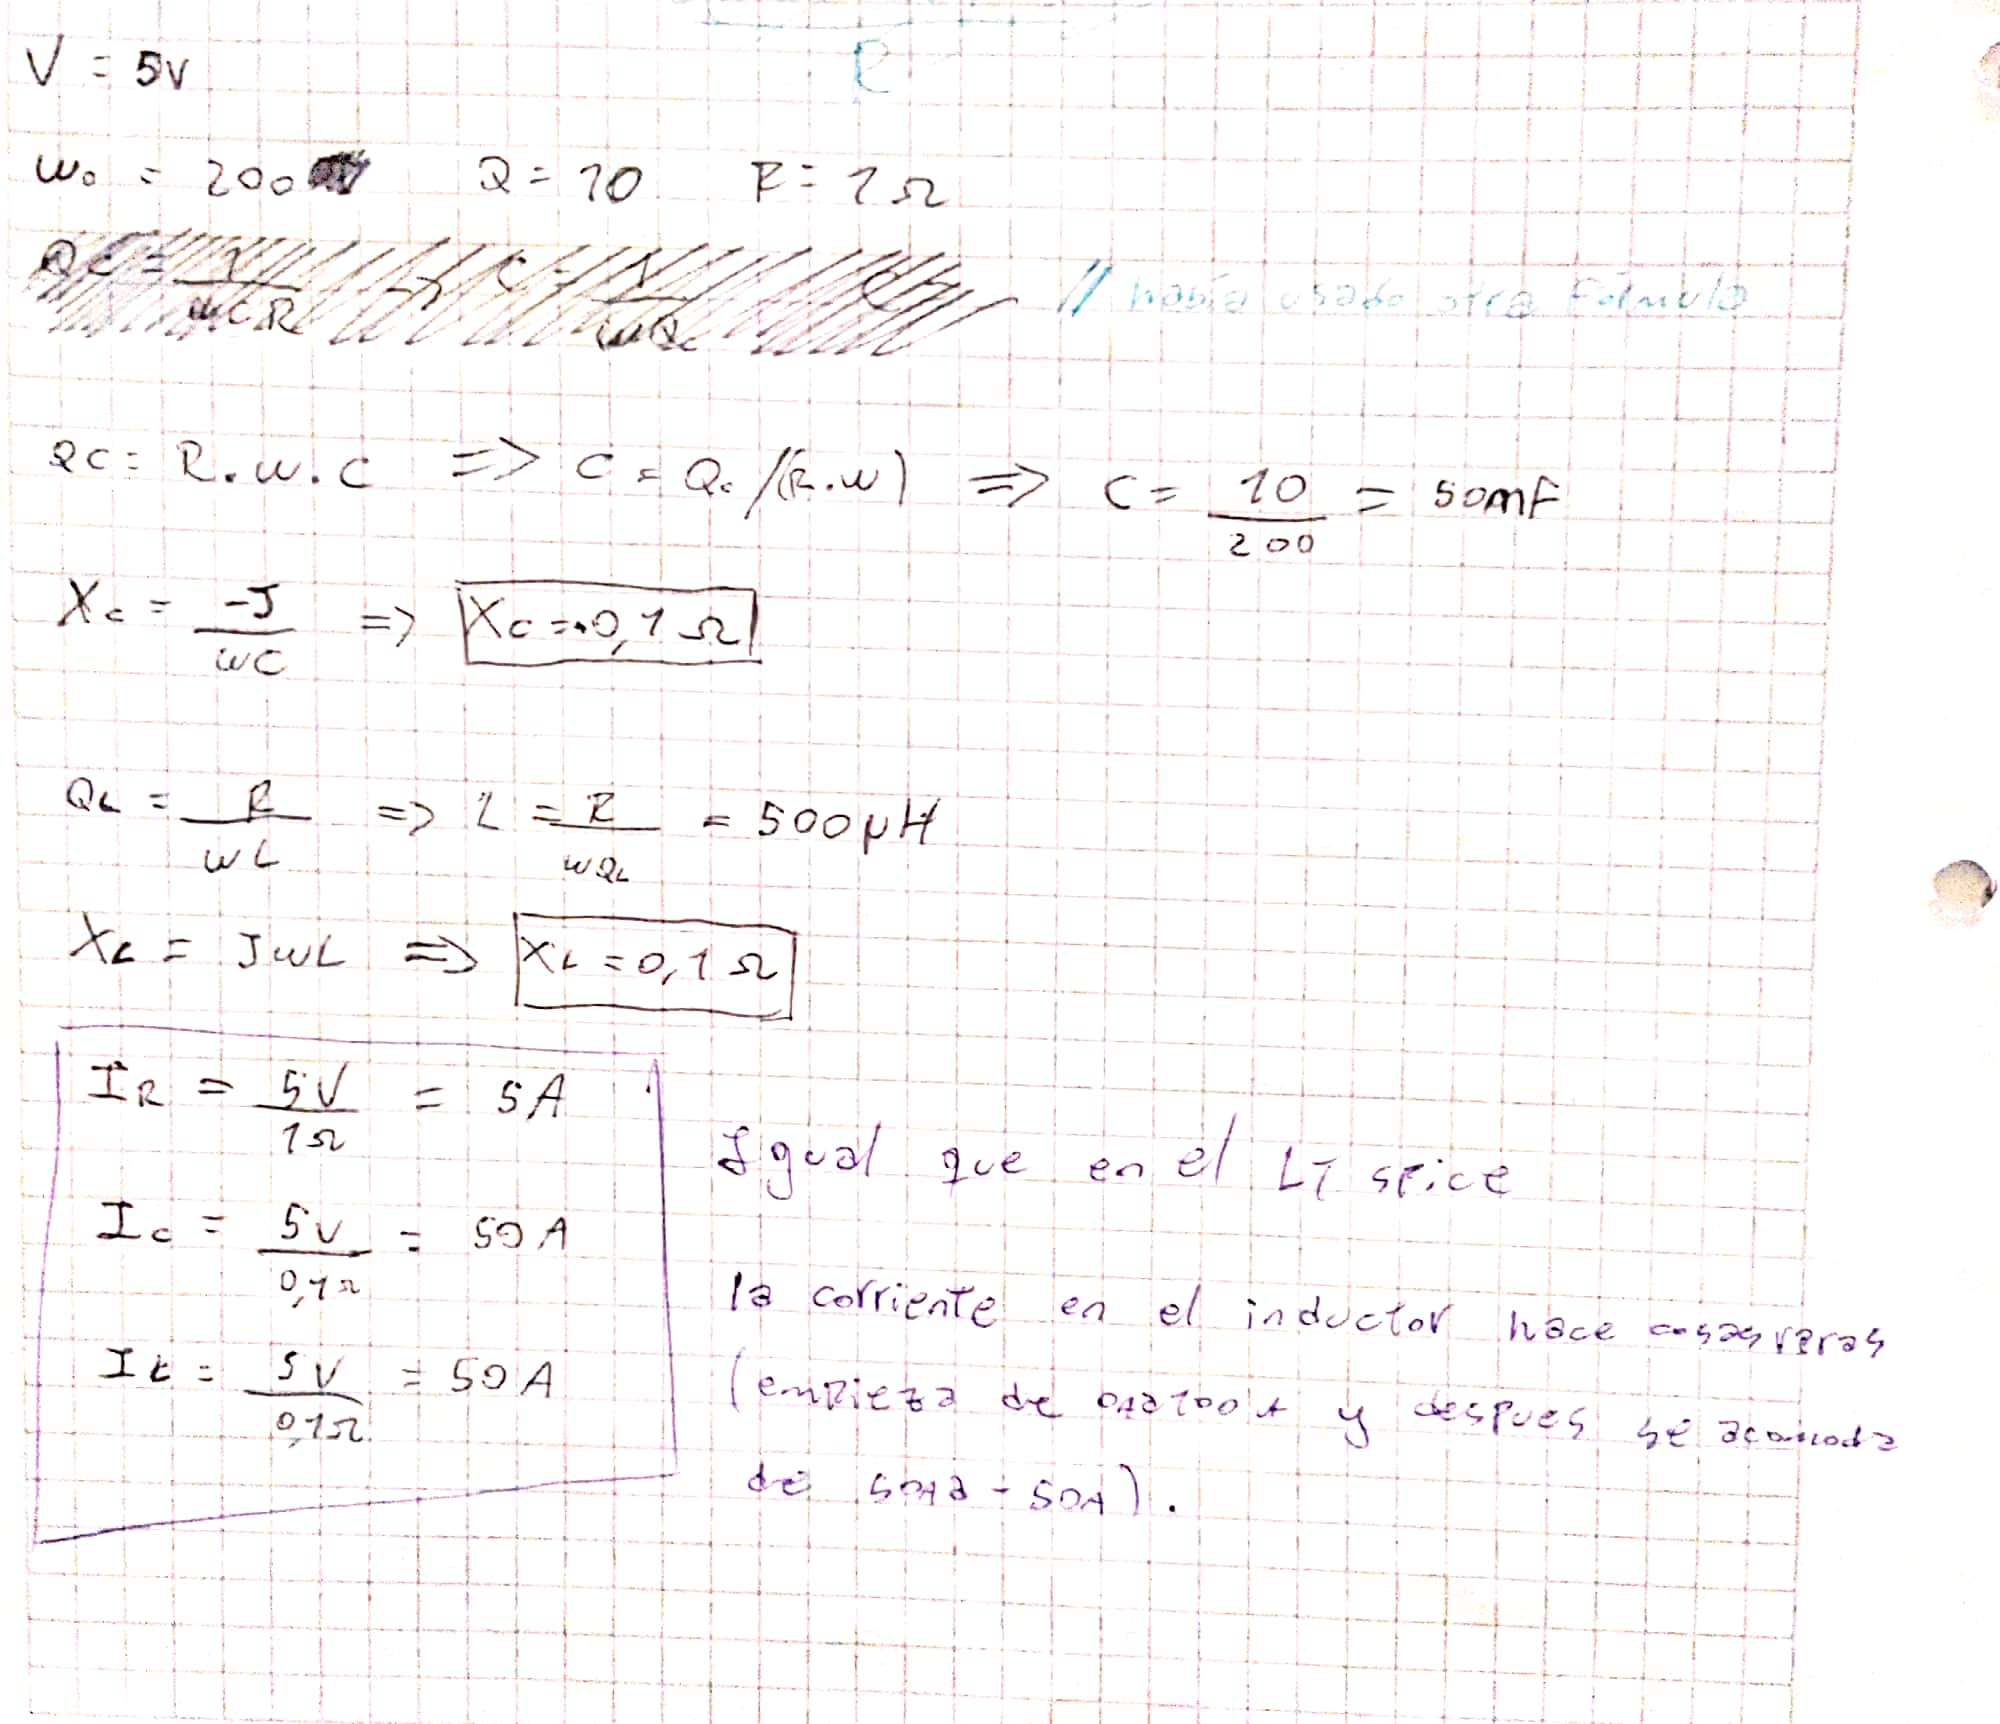 R
V = 5V
W₀ = 200 Q = 10 R = 1Ω
// había usado otra Fórmula
QC = R.W.C => C = Qc/(R.W) => C = 10/200 = 50mF
Xc = -J/WC => Xc = -0,1 Ω
QL = R/WL => L = R/WQL = 500μH
XL = JWL => XL = 0,1 Ω
IR = 5V/1Ω = 5A
Ic = 5V/0,1Ω = 50A
IL = 5V/0,1Ω = 50A
Igual que en el LT spice
la corriente en el inductor hace cosas raras
(empieza de 0A a 100A y despues se acomoda
de 50A a -50A).